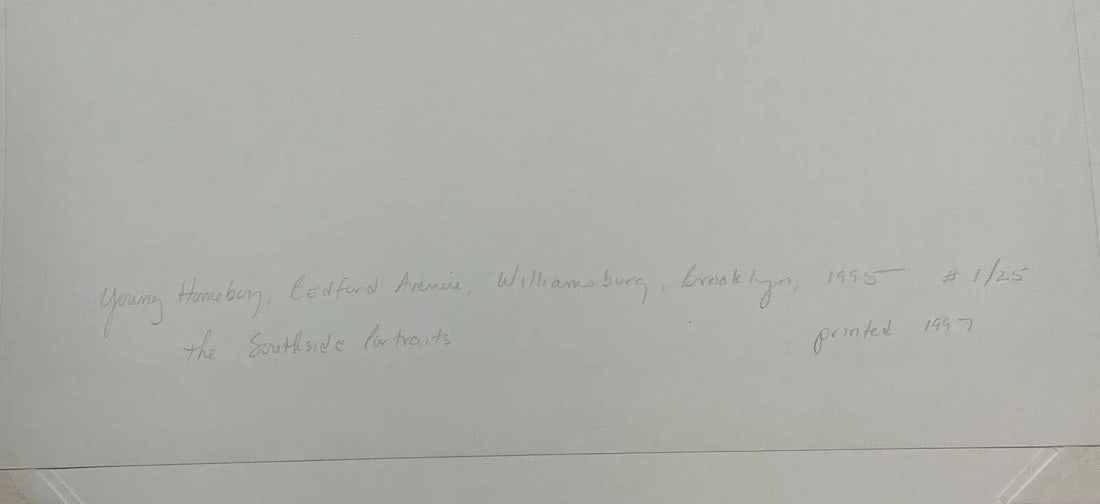 Young Homeboy, Bedford Avenue, Williamsburg, Brooklyn, 1995 # 1/25
the Southside Portraits printed 1997